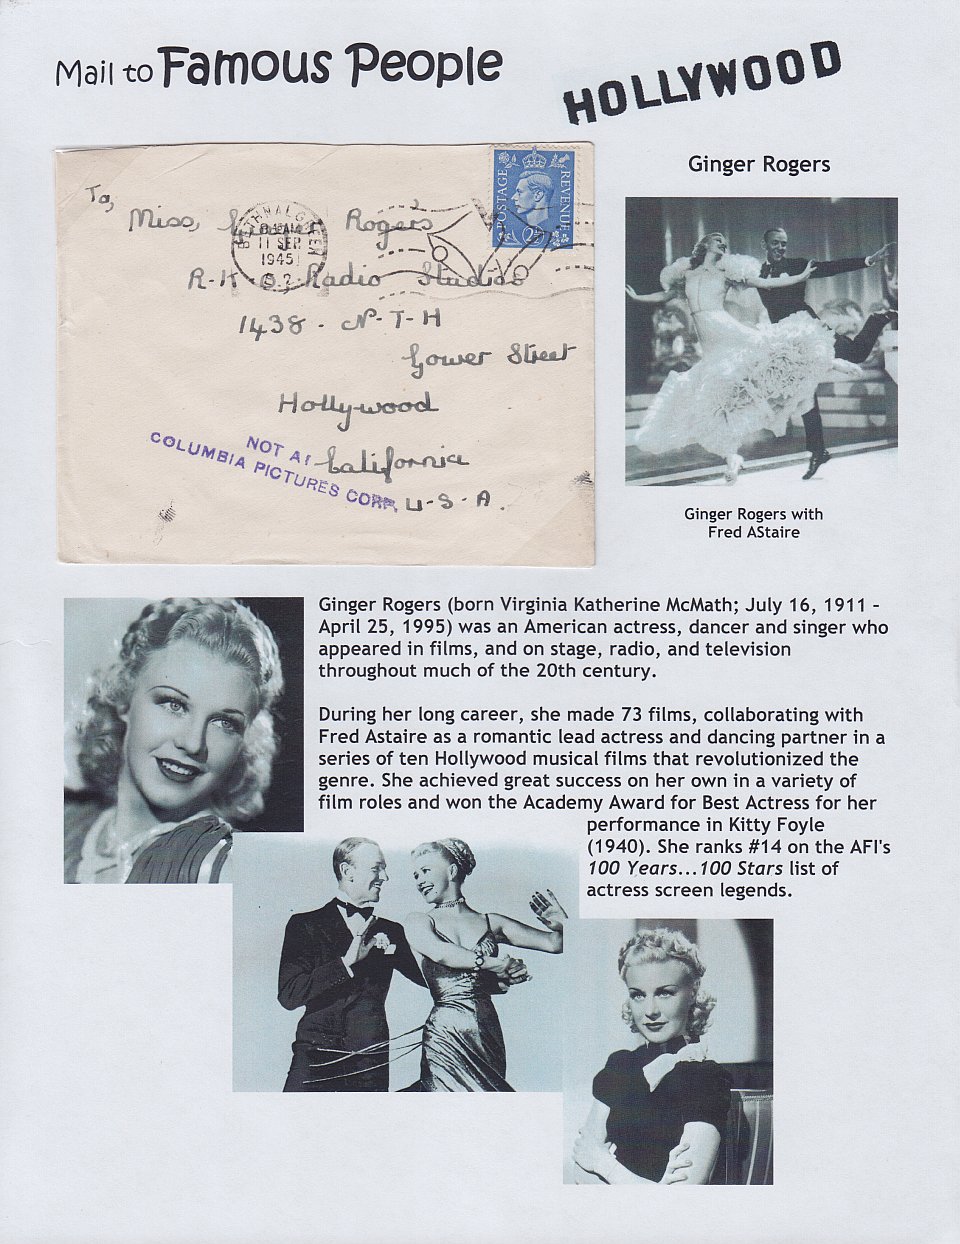 Mail to Famous People
HOLLYWOOD
Ginger Rogers
POSTAGE
REVENUE
2½
BETHNAL GREEN
11 SEP
1945
To,
Miss, Rogers
R-K O.? Radio Studios
1438 - N-T-H
Gower Street
Hollywood
California
U-S-A.
NOT AT
COLUMBIA PICTURES CORP.
Ginger Rogers with
Fred AStaire
Ginger Rogers (born Virginia Katherine McMath; July 16, 1911 –
April 25, 1995) was an American actress, dancer and singer who
appeared in films, and on stage, radio, and television
throughout much of the 20th century.
During her long career, she made 73 films, collaborating with
Fred Astaire as a romantic lead actress and dancing partner in a
series of ten Hollywood musical films that revolutionized the
genre. She achieved great success on her own in a variety of
film roles and won the Academy Award for Best Actress for her
performance in Kitty Foyle
(1940). She ranks #14 on the AFI's
100 Years...100 Stars list of
actress screen legends.